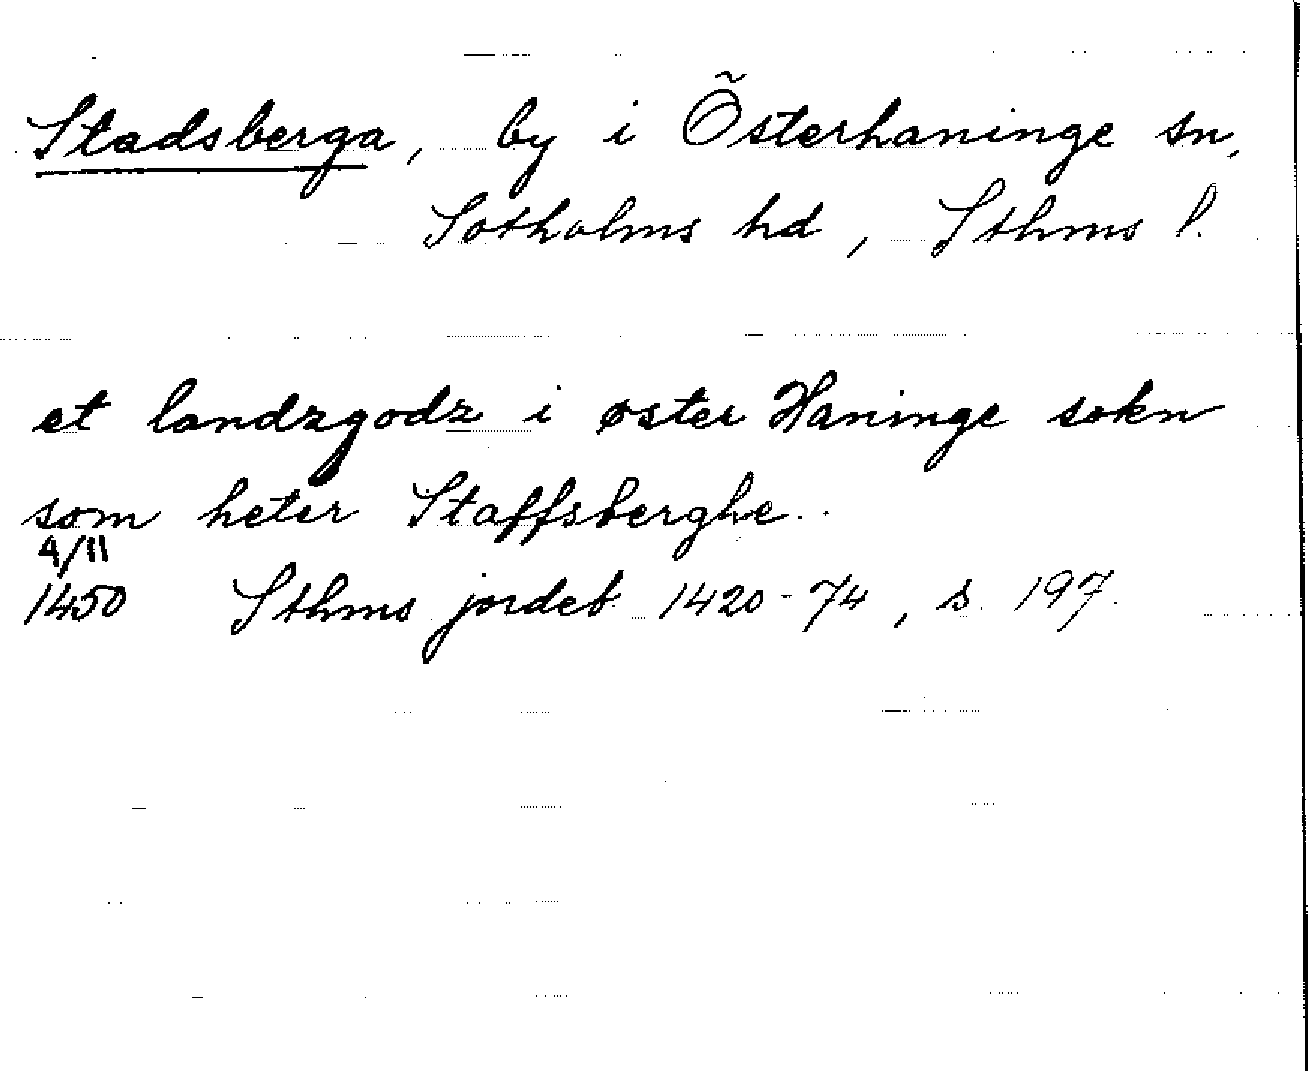 Stadsberga, by i Österhaninge sn,
Sotholms hd, Sthms l.
et landzgodz i øster Haninge sokn
som heter Staffsberghe..
4/11
1450 Sthms jordeb. 1420-74, s. 197.